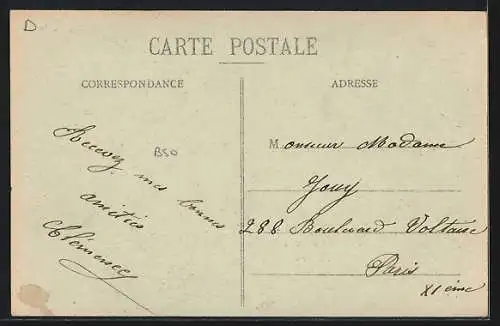 D
CARTE POSTALE
CORRESPONDANCE
ADRESSE
Recevez mes bonnes
amitiés
Clémence
BSO
Monsieur Madame
Jouy
288 Boulevard Voltaire
Paris
XI ème